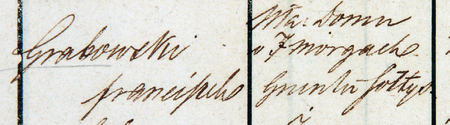 Grabowski
franciszek
Wła: Domu
o 7 morgach
Gruntu Sołtys